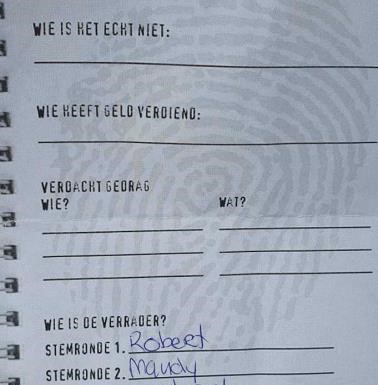 WIE IS HET ECHT NIET:
WIE HEEFT GELD VERDIEND:
VERDACHT GEDRAG
WIE? WAT?
WIE IS DE VERRADER?
STEMRONDE 1. Robert
STEMRONDE 2. Maudy